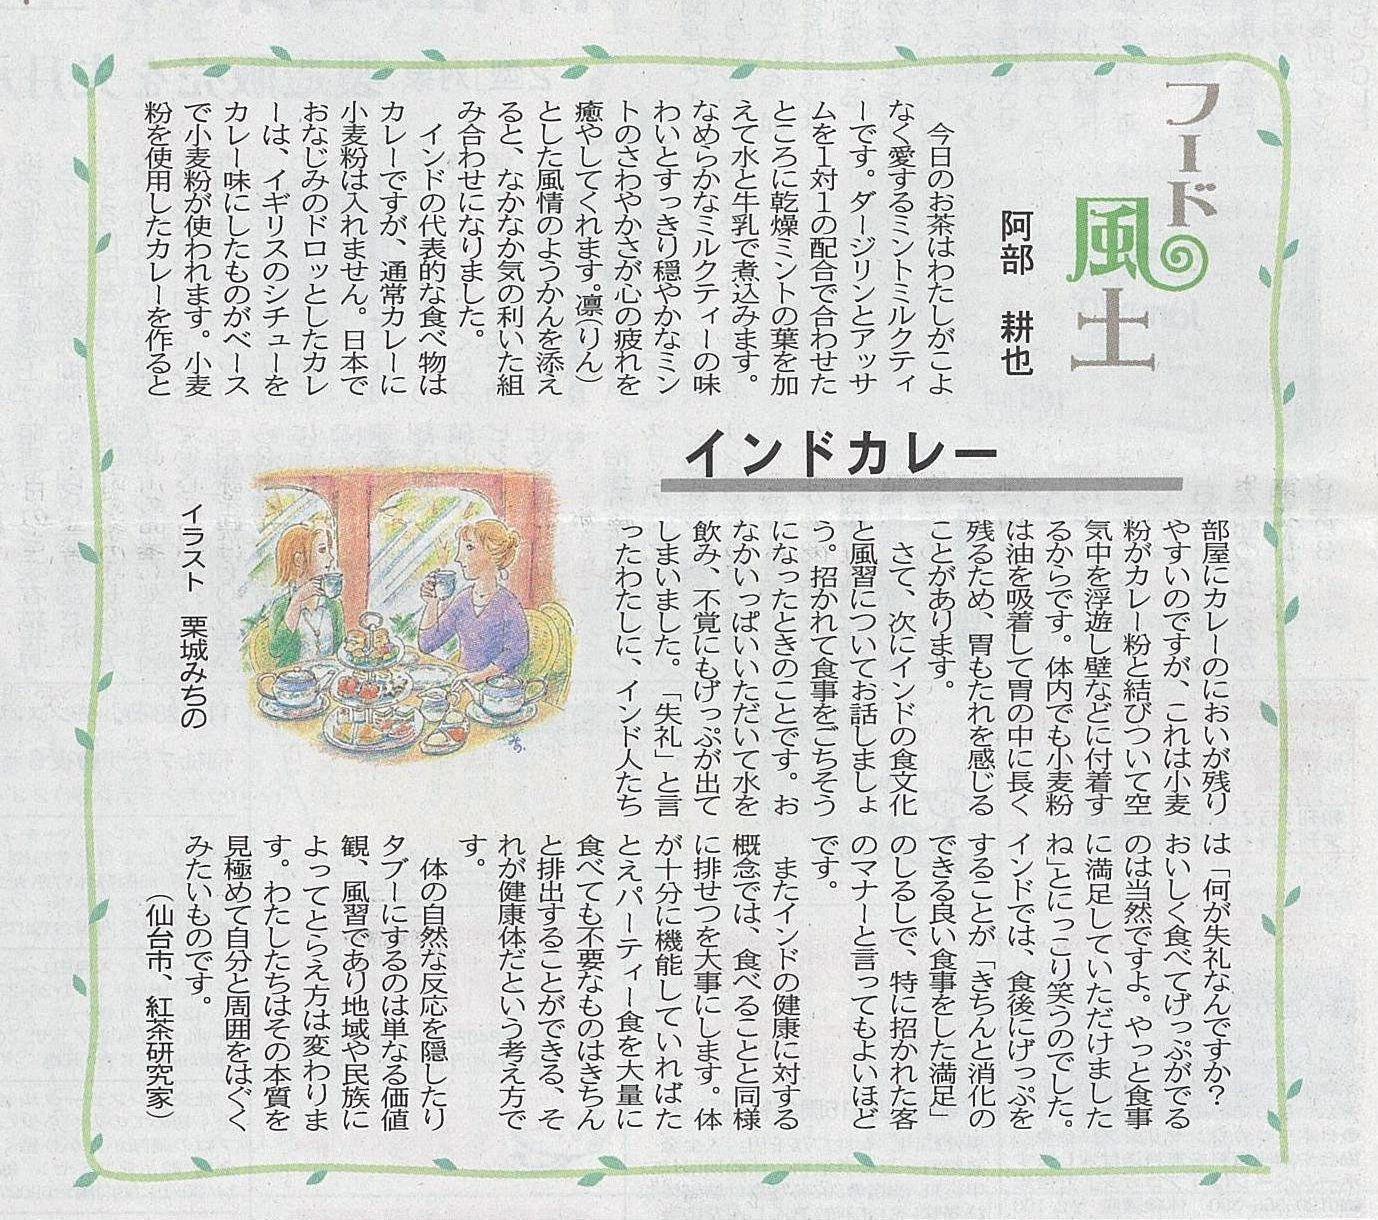 フード風土
阿部 耕也
今日のお茶はわたしがこよ
なく愛するミントミルクティ
ーです。ダージリンとアッサ
ムを1対1の配合で合わせた
ところに乾燥ミントの葉を加
えて水と牛乳で煮込みます。
なめらかなミルクティーの味
わいとすっきり穏やかなミン
トのさわやかさが心の疲れを
癒やしてくれます。凛(りん)
とした風情のようかんを添え
ると、なかなか気の利いた組
み合わせになりました。
インドの代表的な食べ物は
カレーですが、通常カレーに
小麦粉は入れません。日本で
おなじみのドロッとしたカレ
ーは、イギリスのシチューを
カレー味にしたものがベース
で小麦粉が使われます。小麦
粉を使用したカレーを作ると
インドカレー
部屋にカレーのにおいが残り
やすいのですが、これは小麦
粉がカレー粉と結びついて空
気中を浮遊し壁などに付着す
るからです。体内でも小麦粉
は油を吸着して胃の中に長く
残るため、胃もたれを感じる
ことがあります。
さて、次にインドの食文化
と風習についてお話しましょ
う。招かれて食事をごちそう
になったときのことです。お
なかいっぱいいただいて水を
飲み、不覚にもげっぷが出て
しまいました。「失礼」と言
ったわたしに、インド人たち
は「何が失礼なんですか?
おいしく食べてげっぷがでる
のは当然ですよ。やっと食事
に満足していただけました
ね」とにっこり笑うのでした。
インドでは、食後にげっぷを
することが「きちんと消化の
できる良い食事をした満足」
のしるしで、特に招かれた客
のマナーと言ってもよいほど
です。
またインドの健康に対する
概念では、食べることと同様
に排せつを大事にします。体
が十分に機能していればた
とえパーティー食を大量に
食べても不要なものはきちん
と排出することができる、そ
れが健康体だという考え方で
す。
体の自然な反応を隠したり
タブーにするのは単なる価値
観、風習であり地域や民族に
よってとらえ方は変わりま
す。わたしたちはその本質を
見極めて自分と周囲をはぐく
みたいものです。
(仙台市、紅茶研究家)
イラスト 栗城みちの